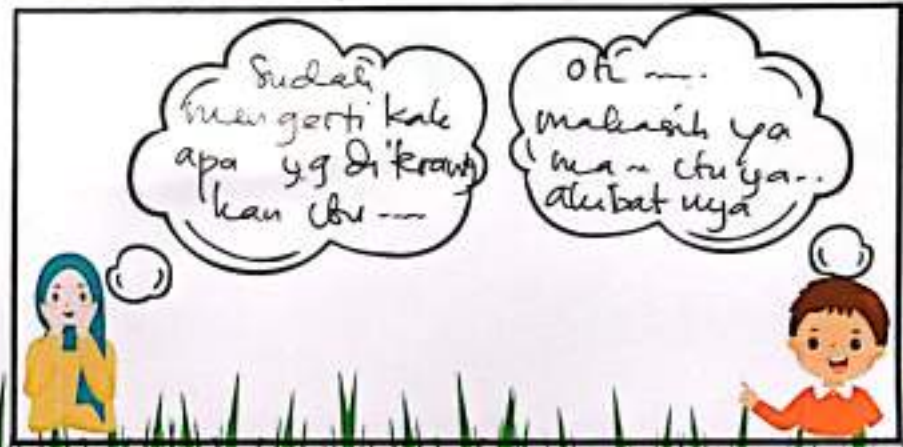 Sudah
mengerti kak
apa yg di'terang
kan itu ----
oh ~~.
makasih ya
ma ~ itu ya..
akibat nya